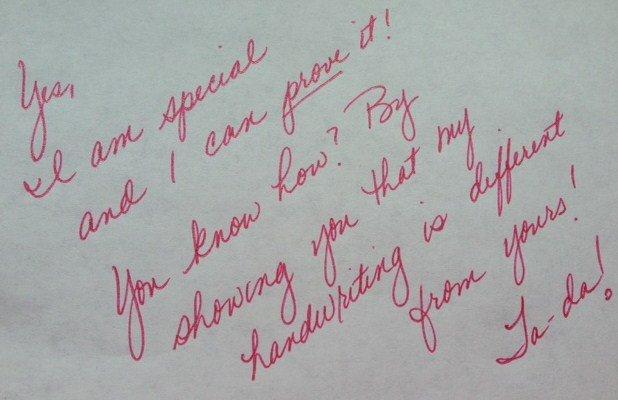 Yes,
I am special
and I can prove it!
You know how? By
showing you that my
handwriting is different
from yours!
Ta-da!